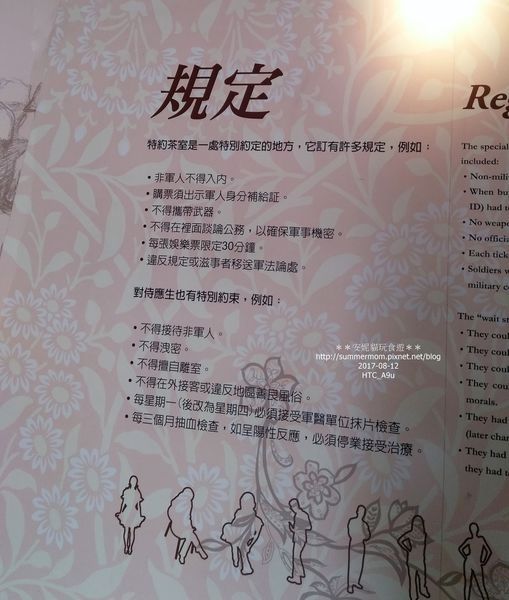 規定
特約茶室是一處特別約定的地方，它訂有許多規定，例如：
•非軍人不得入內。
•購票須出示軍人身分補給証。
•不得攜帶武器。
•不得在裡面談論公務，以確保軍事機密。
•每張娛樂票限定30分鐘。
•違反規定或滋事者移送軍法論處。
對侍應生也有特別約束，例如：
•不得接待非軍人。
•不得洩密。
•不得擅自離室。
•不得在外接客或違反地區善良風俗。
•每星期一(後改為星期四)必須接受軍醫單位抹片檢查。
•每三個月抽血檢查，如呈陽性反應，必須停業接受治療。
Reg
The special
included:
• Non-mili
• When bu
ID) had t
• No weapo
• No officia
• Each tick
• Soldiers w
military c
The “wait s
• They coul
• They coul
• They coul
• They cou
morals.
• They had
(later chan
• They had
they had to
＊＊安妮貓玩食遊＊＊
http://summermom.pixnet.net/blog
2017-08-12
HTC_A9u